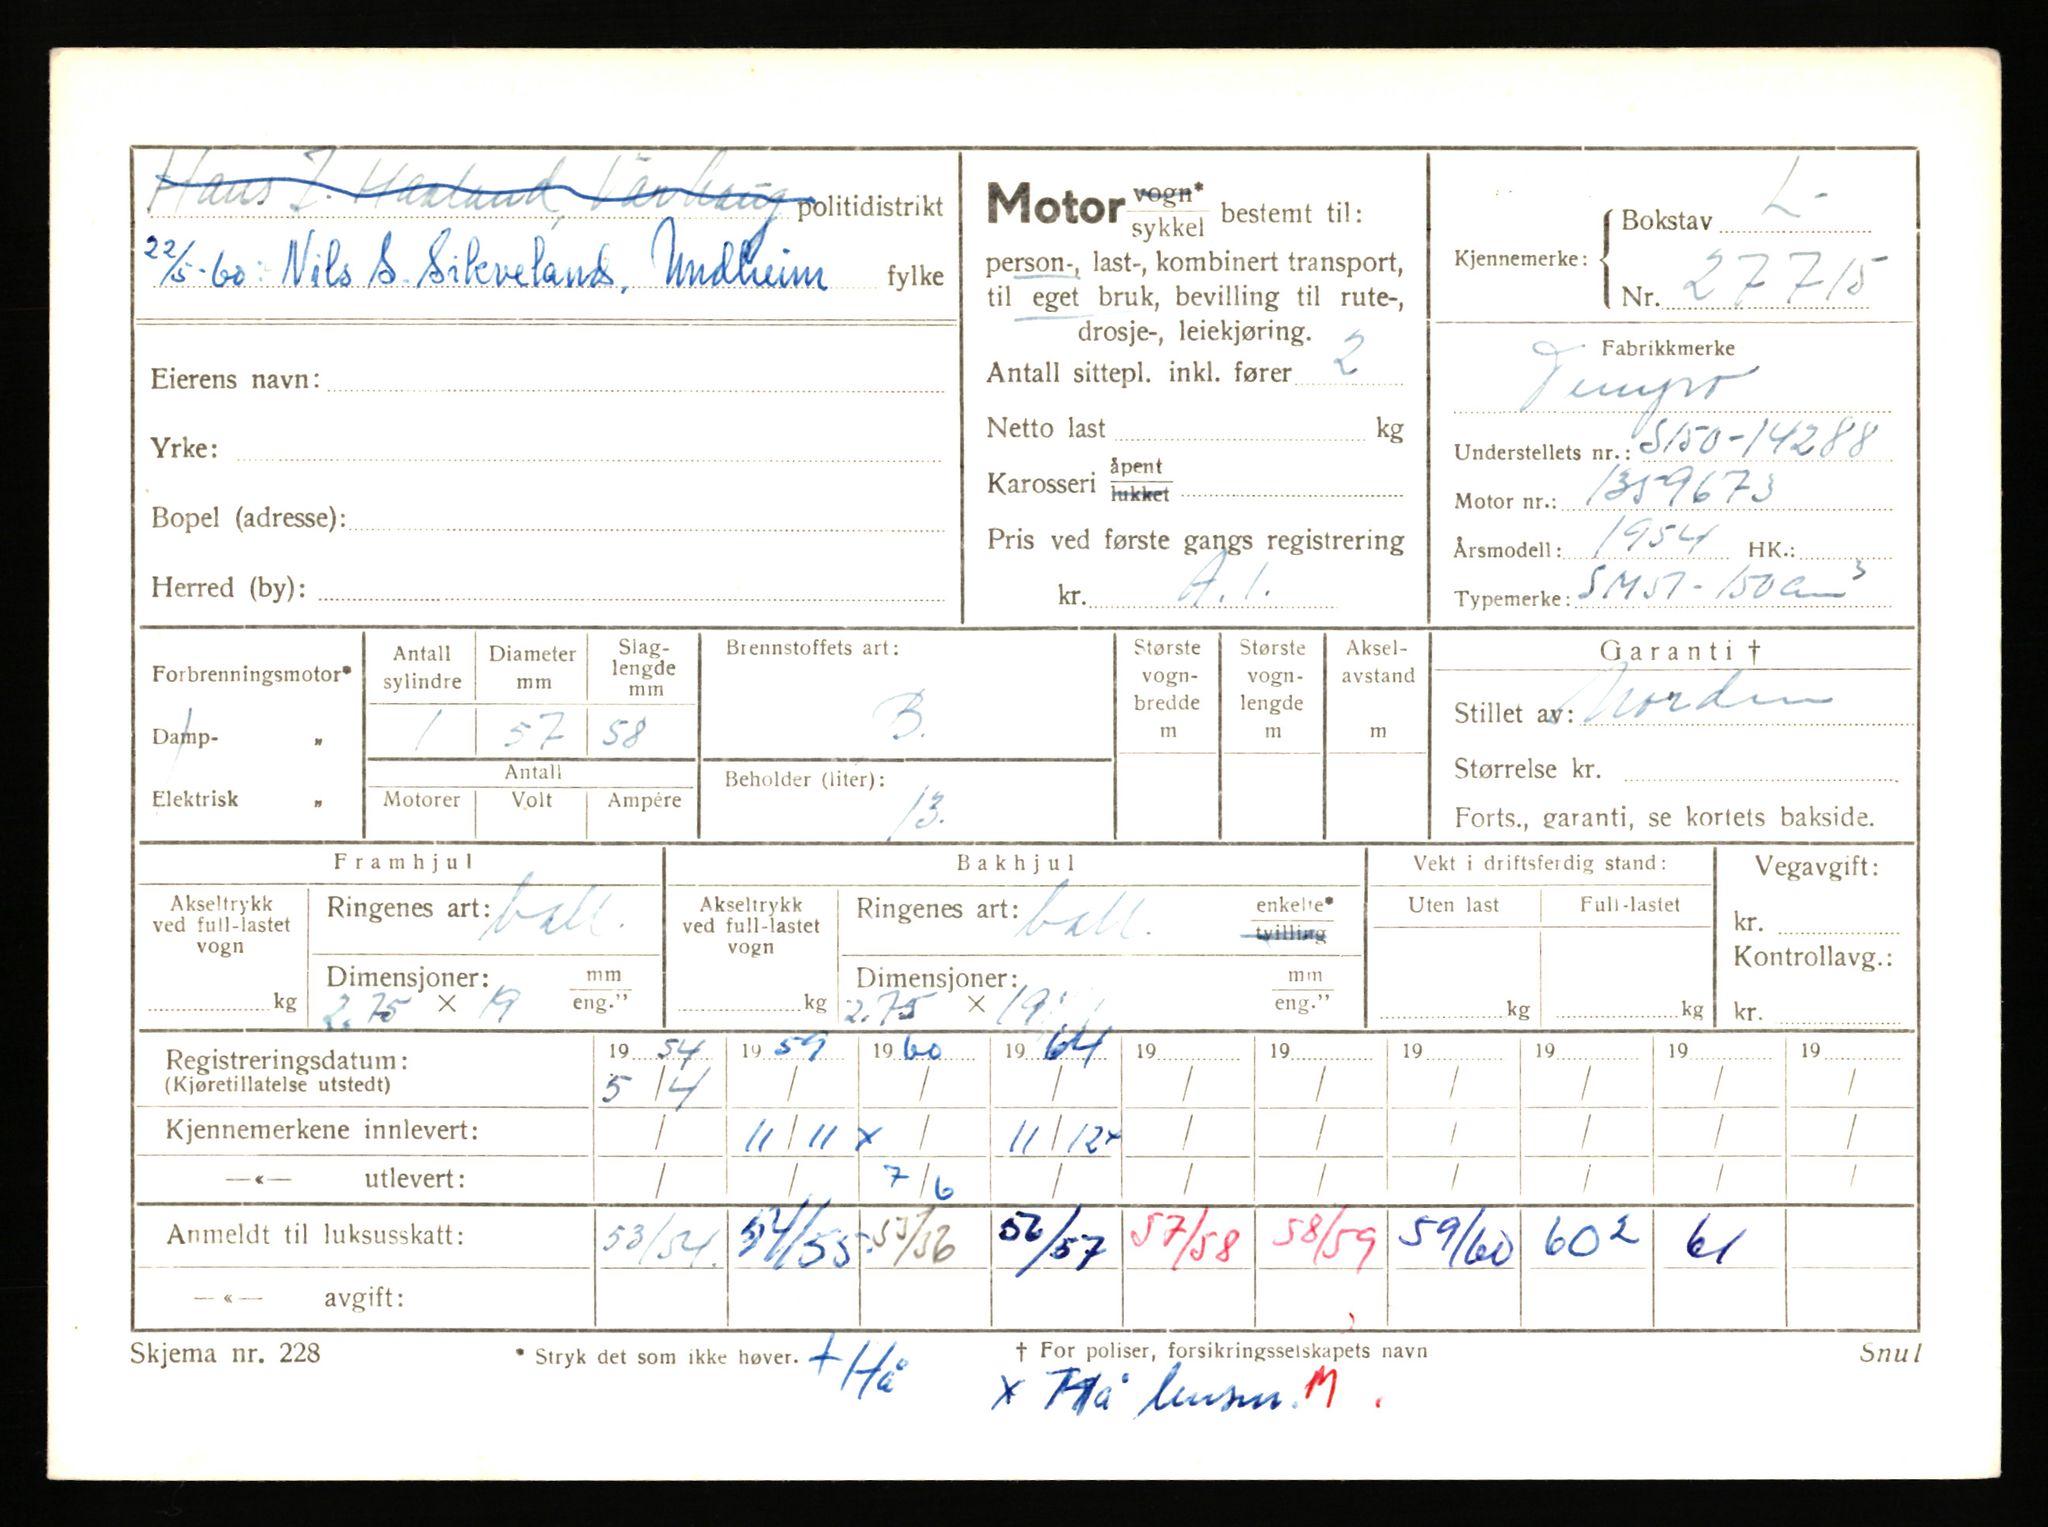 Hans J. Haaland, Varhaug politidistrikt
22/5-60: Nils S. Sikveland, Undheim fylke
Eierens navn:
Yrke:
Bopel (adresse):
Herred (by):
Motor vogn* sykkel bestemt til:
person-, last-, kombinert transport,
til eget bruk, bevilling til rute-,
drosje-, leiekjøring.
Antall sittepl. inkl. fører 2
Netto last kg
Karosseri åpent lukket
Pris ved første gangs registrering
kr. A. 1.
Kjennemerke:
Bokstav L-
Nr. 27715
Fabrikkmerke
Tempo
Understellets nr.: S150-14288
Motor nr.: 1359673
Årsmodell: 1954 HK.:
Typemerke: SM51-150cm3
Forbrenningsmotor*
Damp- „
Elektrisk „
Antall sylindre Diameter mm Slaglengde mm
1 57 58
Antall
Motorer Volt Ampére
Brennstoffets art:
B.
Beholder (liter):
13.
Største vogn-bredde m
Største vogn-lengde m
Aksel-avstand m
Garanti †
Stillet av: Norden
Størrelse kr.
Forts., garanti, se kortets bakside.
Framhjul
Akseltrykk ved full-lastet vogn kg
Ringenes art: ball.
Dimensjoner: mm eng."
2.75 × 19
Bakhjul
Akseltrykk ved full-lastet vogn kg
Ringenes art: ball. enkelte* tvilling
Dimensjoner: mm eng."
2.75 × 19
Vekt i driftsferdig stand:
Uten last Full-lastet
kg kg
Vegavgift:
kr.
Kontrollavg.:
kr.
Registreringsdatum: 1954 1959 1960 1964 19 19 19 19 19 19
(Kjøretillatelse utstedt) 5/4 / / / / / / / / /
Kjennemerkene innlevert: / 11/11 x / 11/12+ / / / / / /
—«— utlevert: / / 7/6 / / / / / / /
Anmeldt til luksusskatt: 53/54. 54/55 55/56 56/57 57/58 58/59 59/60 60 2 61
—«— avgift:
Skjema nr. 228 * Stryk det som ikke høver. † For poliser, forsikringsselskapets navn Snul
+ Hå
x Hå lensm. M.